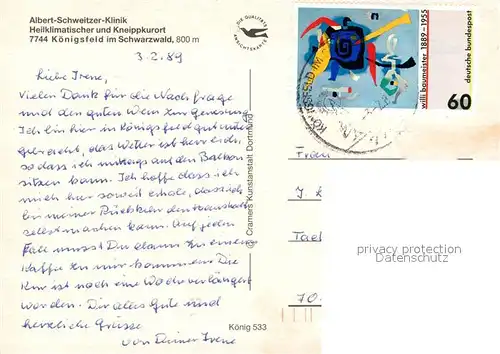 Albert-Schweitzer-Klinik
Heilklimatischer und Kneippkurort
7744 Königsfeld im Schwarzwald, 800 m
3.2.89
Liebe Irene,
Vielen Dank für die Nachfrage
und den guten Wein zur Genesung.
Ich bin hier in Königsfeld gut unter-
gebracht, das Wetter ist herrlich,
so dass ich mittags auf den Balkon
sitzen kann. Ich hoffe dass ich
mich hier soweit erhole, dass ich
bei meiner Rückkehr den Haushalt
selbst machen kann. Auf jeden
Fall musst Du dann zu einem
Kaffee zu mir kommen. Die
Kur ist noch eine Woche verlängert
worden. Dir alles Gute und
herzliche Grüsse
von Deiner Irene
König 533
© Cramers Kunstanstalt Dortmund
DIE QUALITÄTS
ANSICHTSKARTE
willi baumeister 1889-1955
deutsche bundespost
60
Frau
privacy protection
Datenschutz